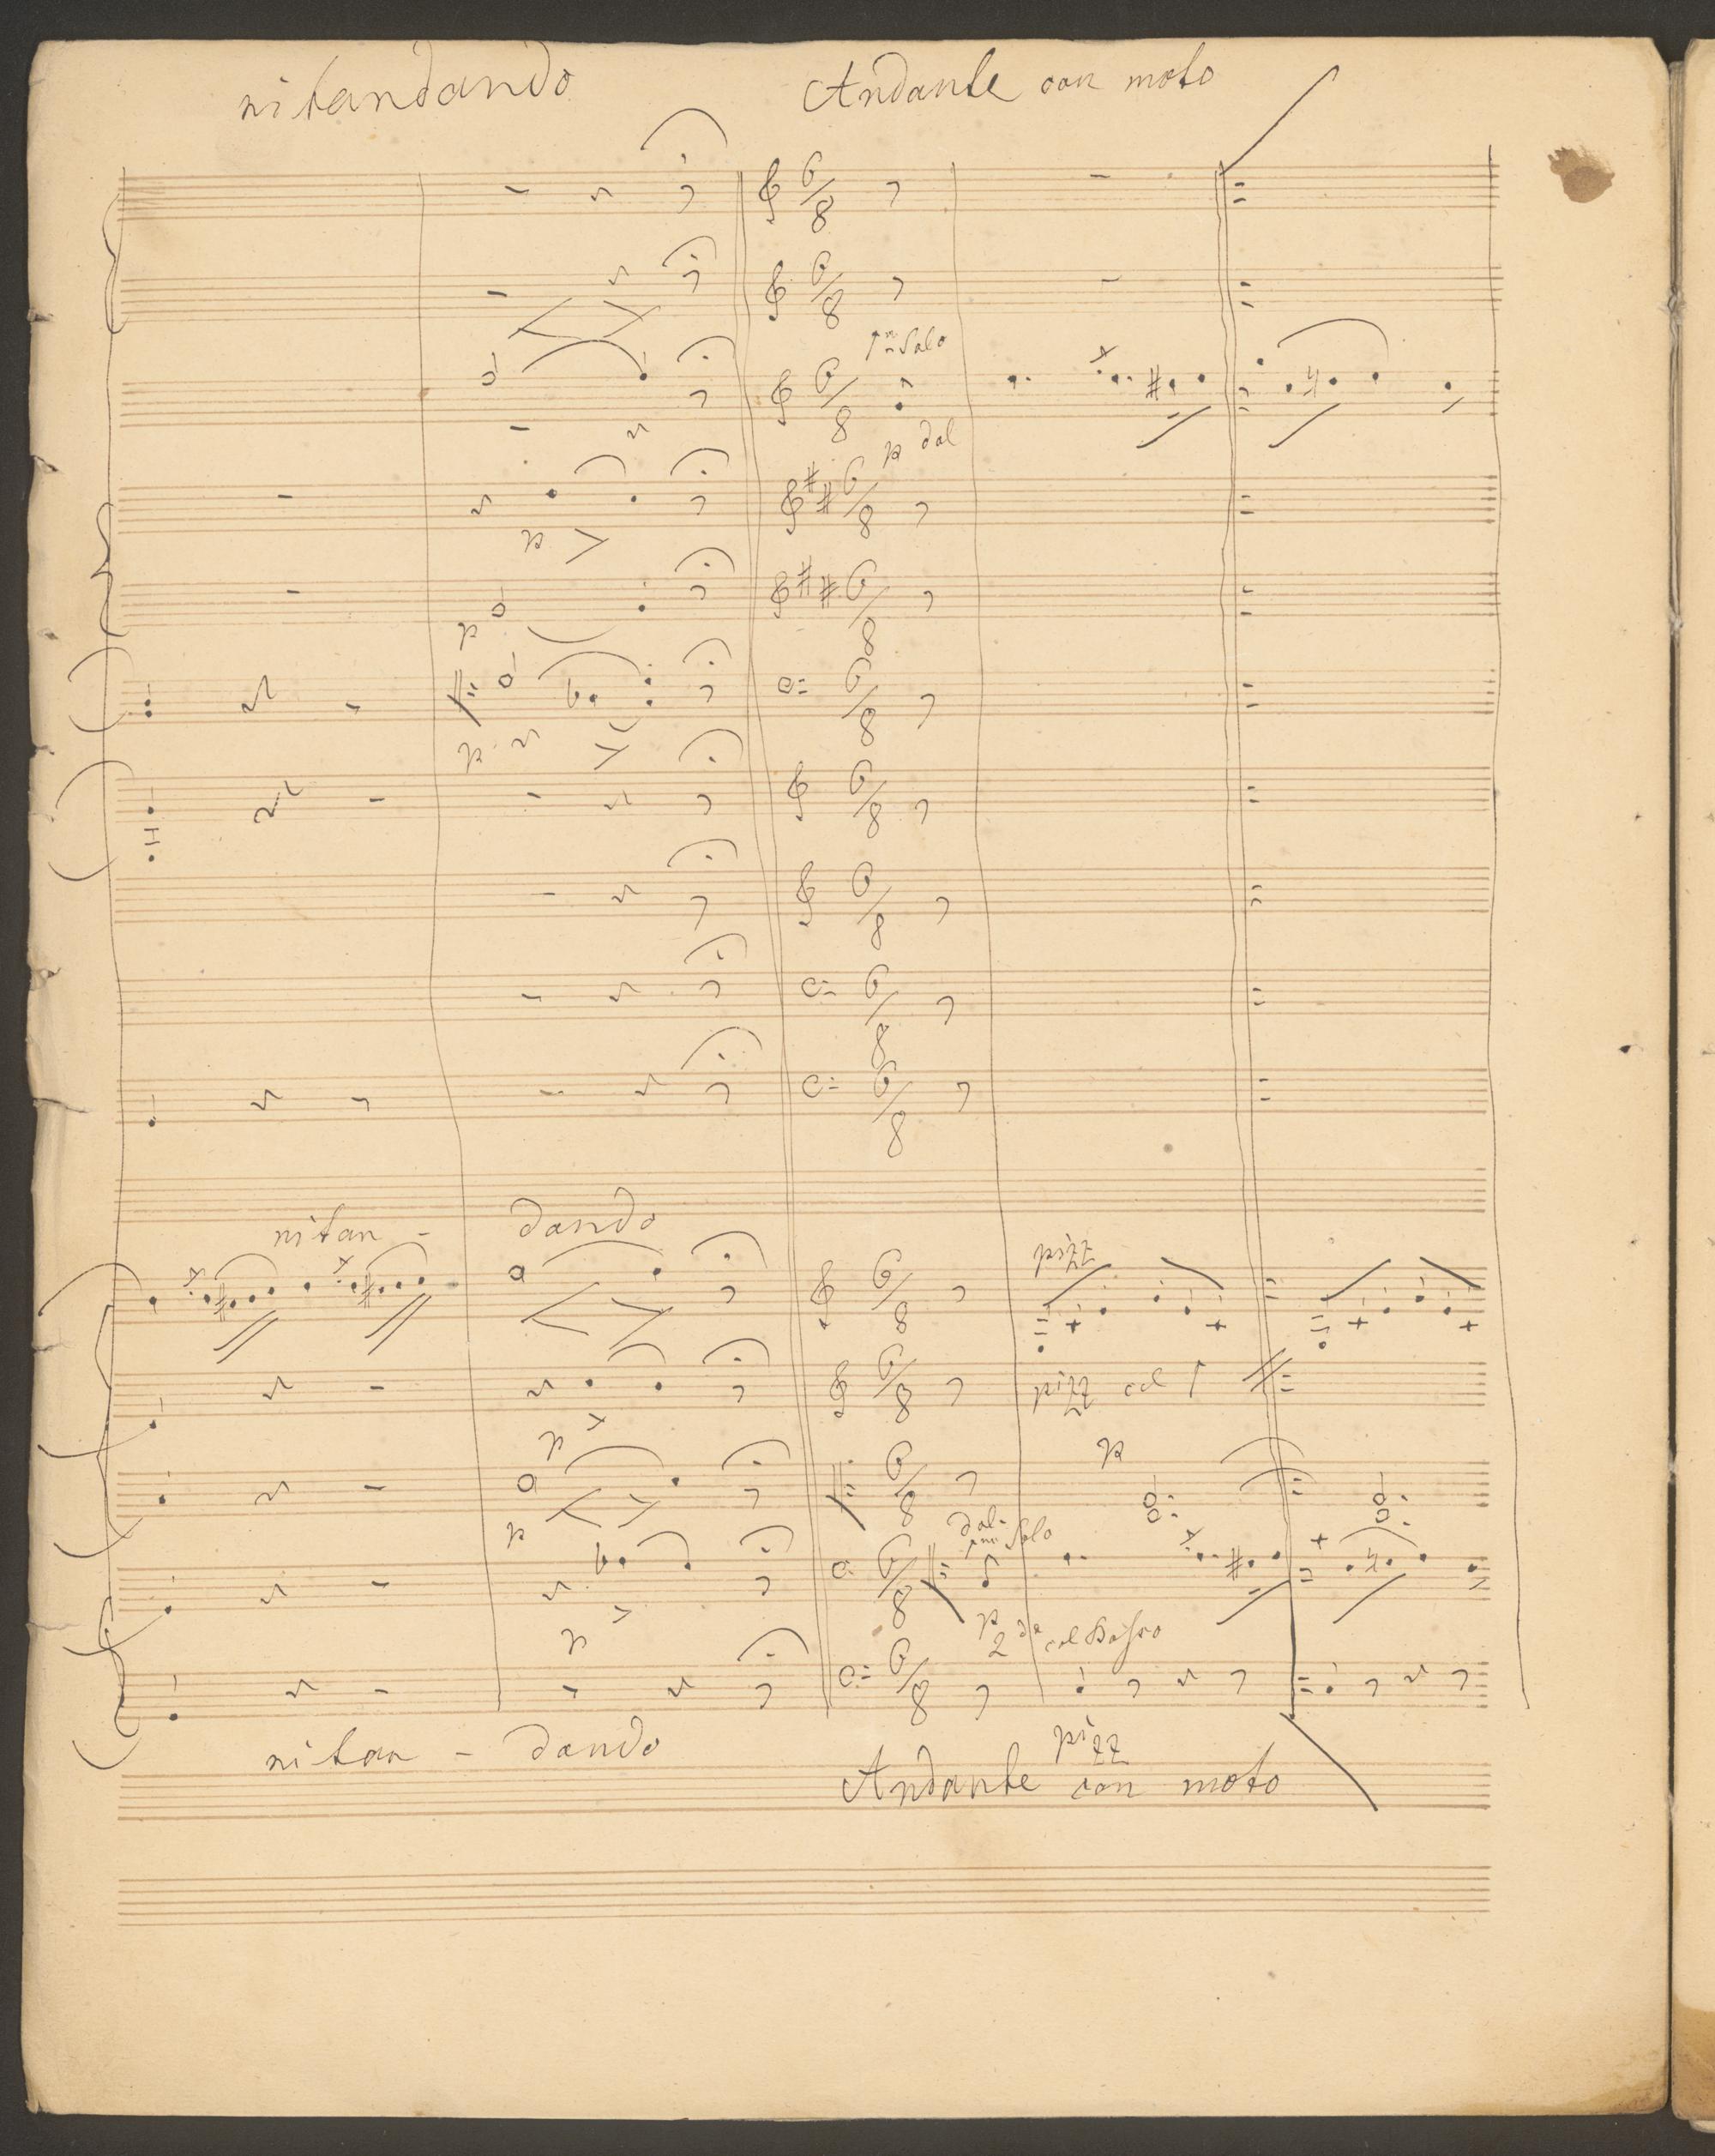 ritardando Andante con moto
1mo Solo
p dol
p
p
p
ritar - dando
pizz
pizz col 1
p
p
p
dol.
1mo Solo
p
p
2do col Basso
ritar - dando
pizz
Andante con moto